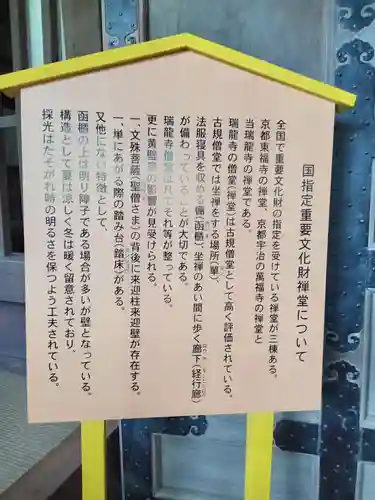 国指定重要文化財禅堂について
全国で重要文化財の指定を受けている禅堂が三棟ある。
京都東福寺の禅堂、京都宇治の萬福寺の禅堂と
当瑞龍寺の禅堂である。
瑞龍寺の僧堂(禅堂)は古規僧堂として高く評価されている。
古規僧堂では坐禅をする場所(単)、
法服寝具を収める棚(函櫃)、坐禅のあい間に歩く廊下(経行廊)
が備わっていることが大切である。
瑞龍寺僧堂は凡てそれ等が整っている。
更に黄檗宗の影響が見受けられる。
一、文殊菩薩(聖僧さま)の背後に来迎柱来迎壁が存在する。
一、単にあがる際の踏み台(踏床)がある。
又他にない特徴として、
函櫃の上は明り障子である場合が多いが壁となっている。
構造として夏は涼しく冬は暖く留意されており、
採光はたそがれ時の明るさを保つよう工夫されている。